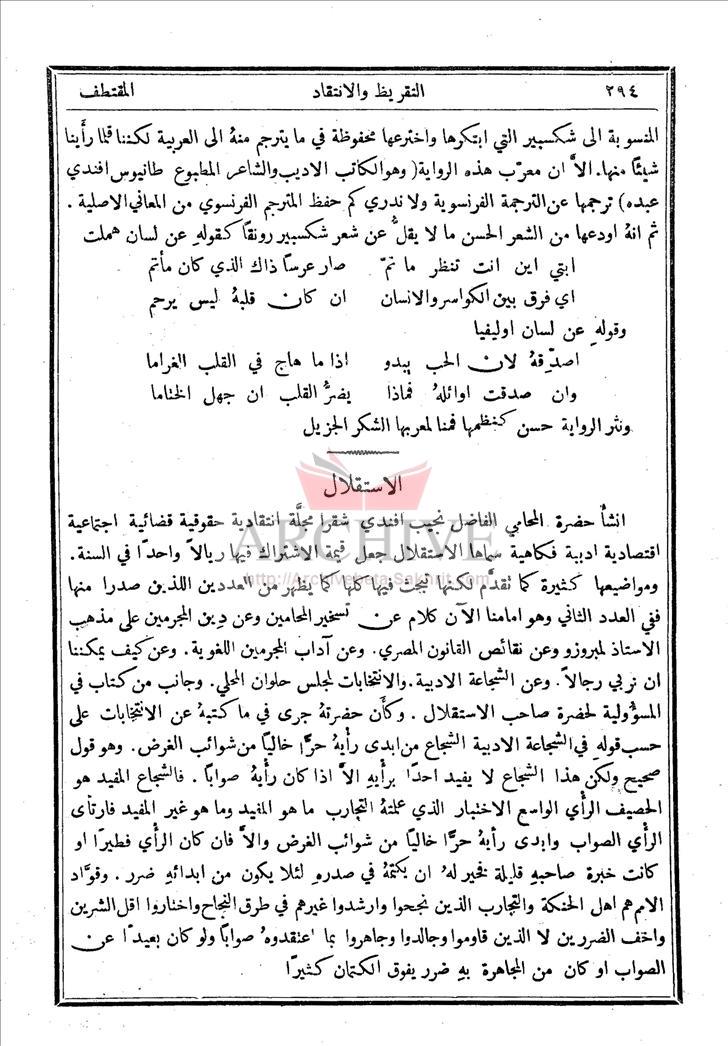 ٢٩٤ التقريظ والانتقاد المقتطف
المنسوبة الى شكسبير التي ابتكرها واخترعها محفوظة في ما يترجم منهُ الى العربية لكننا قلما رأينا
شيئًا منها. الاَّ ان معرّب هذه الرواية (وهو الكاتب الاديب والشاعر المطبوع طانيوس افندي
عبده) ترجمها عن الترجمة الفرنسوية ولا ندري كم حفظ المترجم الفرنسوي من المعاني الاصلية .
ثم انهُ اودعها من الشعر الحسن ما لا يقلُّ عن شعر شكسبير رونقًا كقولهِ عن لسان هملت
ابتي اين انت تنظر ما تمّ صار عرسًا ذاك الذي كان مأتم
اي فرق بين الكواسر والانسان ان كان قلبهُ ليس يرحم
وقولهِ عن لسان اوليفيا
اصدّقهُ لان الحب يبدو اذا ما هاج في القلب الغراما
وان صدقت اوائلهُ فماذا يضرُّ القلب ان جهل الختاما
ونثر الرواية حسن كنظمها فمنا لمعربها الشكر الجزيل
الاستقلال
انشأ حضرة المحامي الفاضل نجيب افندي شقرا مجلَّة انتقادية حقوقية قضائية اجتماعية
اقتصادية ادبية فكاهية سماها الاستقلال جعل قيمة الاشتراك فيها ريالاً واحدًا في السنة.
ومواضيعها كثيرة كما تقدَّم لكنها تبحث فيها كلها كما يظهر من العددين اللذين صدرا منها
ففي العدد الثاني وهو امامنا الآن كلام عن تسخير المحامين وعن دِين المجرمين على مذهب
الاستاذ لمبروزو وعن نقائص القانون المصري. وعن آداب المجرمين اللغوية. وعن كيف يمكننا
ان نربي رجالاً. وعن الشجاعة الادبية. والانتخابات لمجلس حلوان المحلي. وجانب من كتاب في
المسؤولية لحضرة صاحب الاستقلال . وكأن حضرتهُ جرى في ما كتبهُ عن الانتخابات على
حسب قولهِ في الشجاعة الادبية الشجاع من ابدى رأيهُ حرًّا خاليًا من شوائب الغرض. وهو قول
صحيح ولكن هذا الشجاع لا يفيد احدًا برأيهِ الاَّ اذا كان رأيهُ صوابًا . فالشجاع المفيد هو
الحصيف الرأي الواسع الاختبار الذي علمتهُ التجارب ما هو المفيد وما هو غير المفيد فارتأى
الرأي الصواب وابدى رأيهُ حرًّا خاليًا من شوائب الغرض والاَّ فان كان الرأي فطيرًا او
كانت خبرة صاحبهِ قليلة فخير لهُ ان يكتمهُ في صدرهِ لئلا يكون من ابدائهِ ضرر . وقوَّاد
الامم هم اهل الحنكة والتجارب الذين نجحوا وارشدوا غيرهم في طرق النجاح واختاروا اقل الشرين
واخف الضررين لا الذين قاوموا وجالدوا وجاهروا بما اعتقدوهُ صوابًا ولو كان بعيدًا عن
الصواب او كان من المجاهرة بهِ ضرر يفوق الكتمان كثيرًا
ARCHIVE
http://Archivebeta.Sakhrit.com